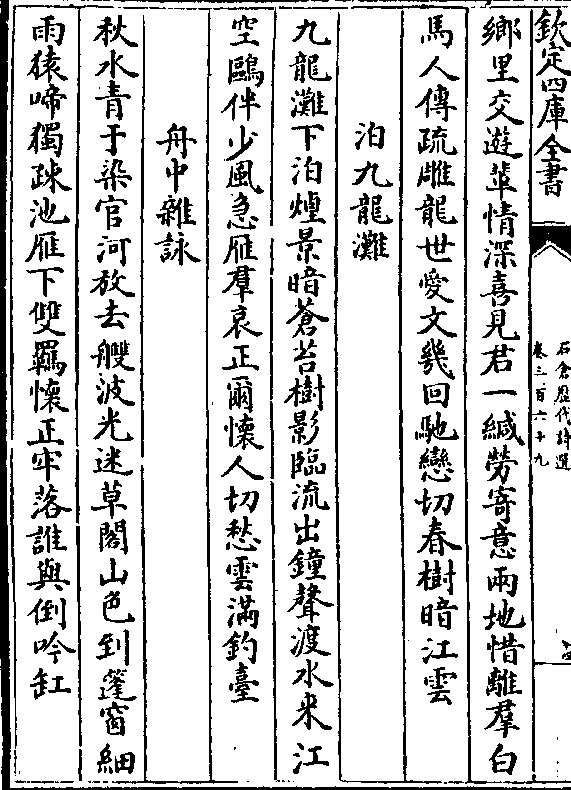 欽定四庫全書
石倉歷代詩選
卷三百六十九
十四
鄉里交遊輩情深喜見君一緘勞寄意兩地惜離羣白
馬人傳疏雕龍世愛文幾回馳戀切春樹暗江雲
泊九龍灘
九龍灘下泊煙景暗蒼苔樹影臨流出鐘聲渡水來江
空鷗伴少風急雁羣哀正爾懷人切愁雲滿釣臺
舟中雜詠
秋水青于染官河放去艭波光迷草閣山色到蓬窗細
雨猿啼獨疎池雁下雙羈懷正牢落誰與倒吟缸